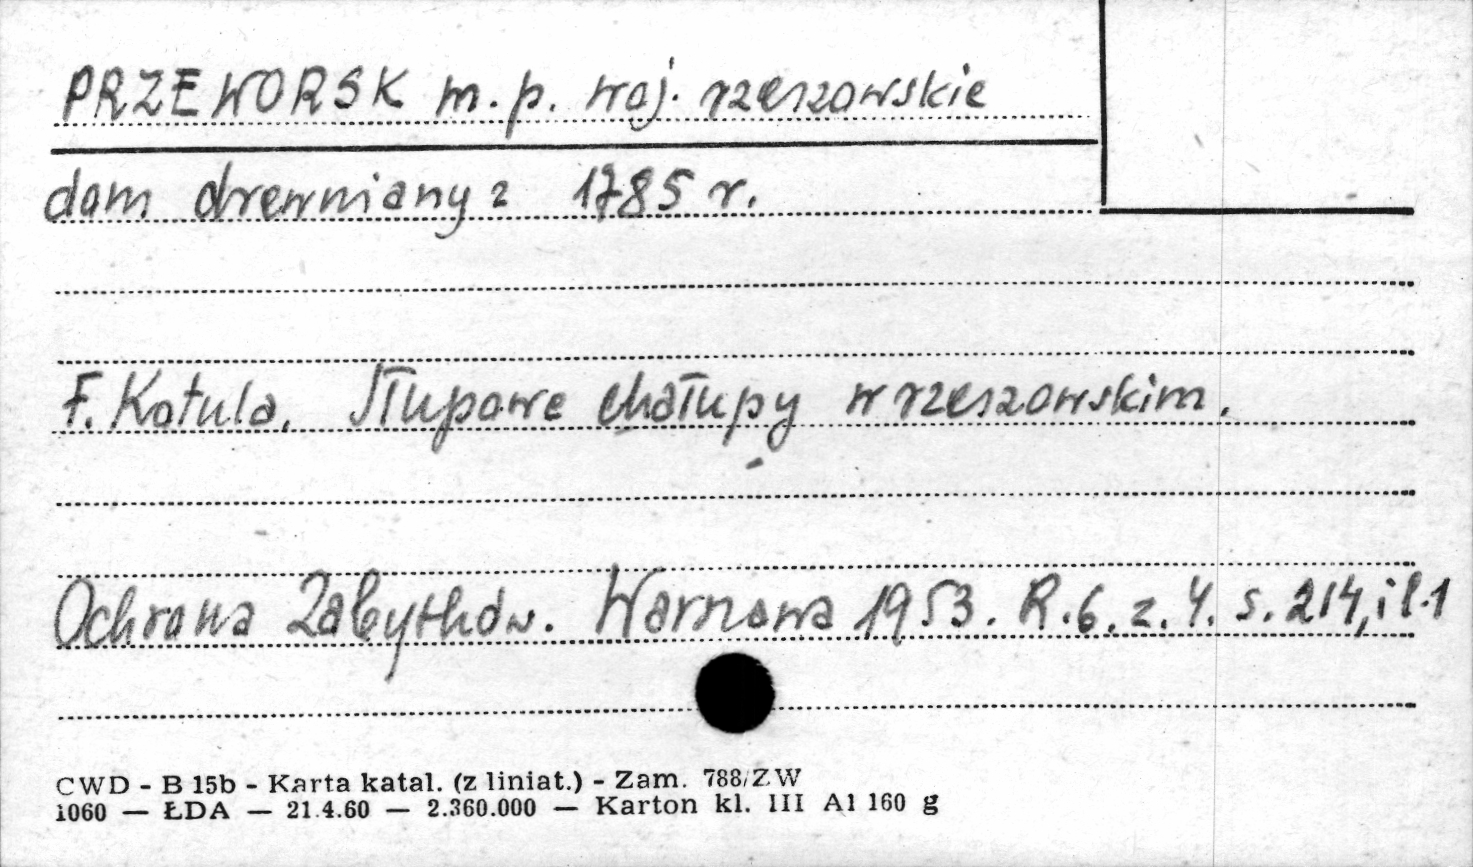 PRZEWORSK m.p. woj. rzeszowskie
dom drewniany z 1785 r.
F. Kotula. Słupowe chałupy w rzeszowskim.
Ochrona Zabytków. Warszawa 1953. R.6. z. 4. s. 214, il.1
CWD - B 15b - Karta katal. (z liniat.) - Zam. 788/ZW
1060 — ŁDA — 21.4.60 — 2.360.000 — Karton kl. III A1 160 g